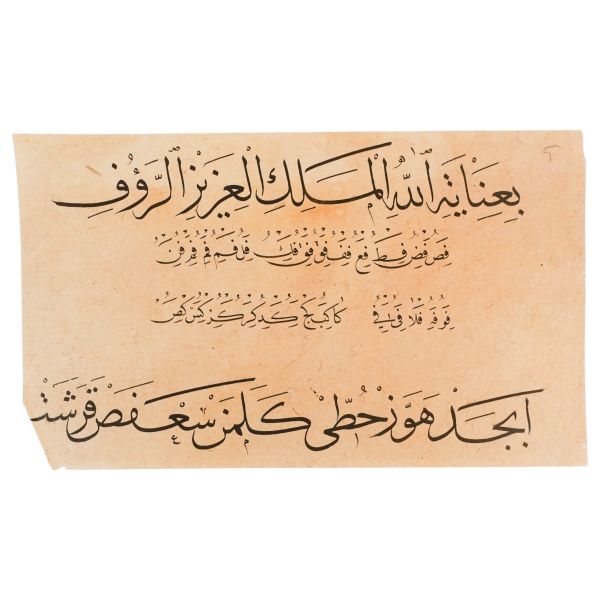 بِعِنَايَةِ ٱللّٰهِ ٱلْمَلِكِ الْعَزِيْزِ ٱلرَّؤُفِ
فص فض فط فع فف فق فك فل فم فن
فو فه فلا فى كا كب كج كد كر كز كس كص
ابجد هوز حطى كلمن سعفص قرشت